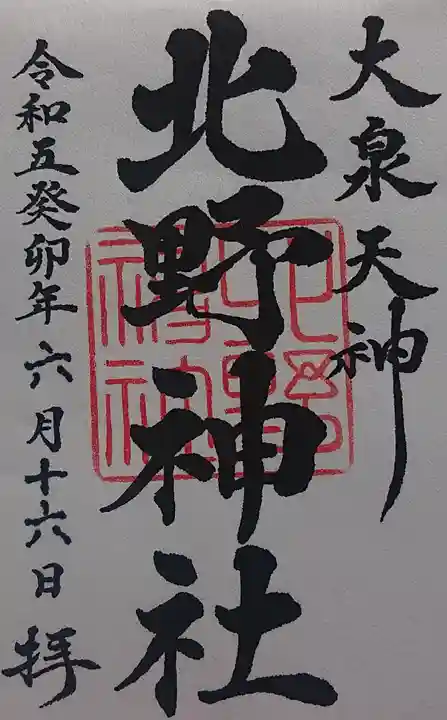 大泉天神
北野神社
令和五癸卯年六月十六日 拝